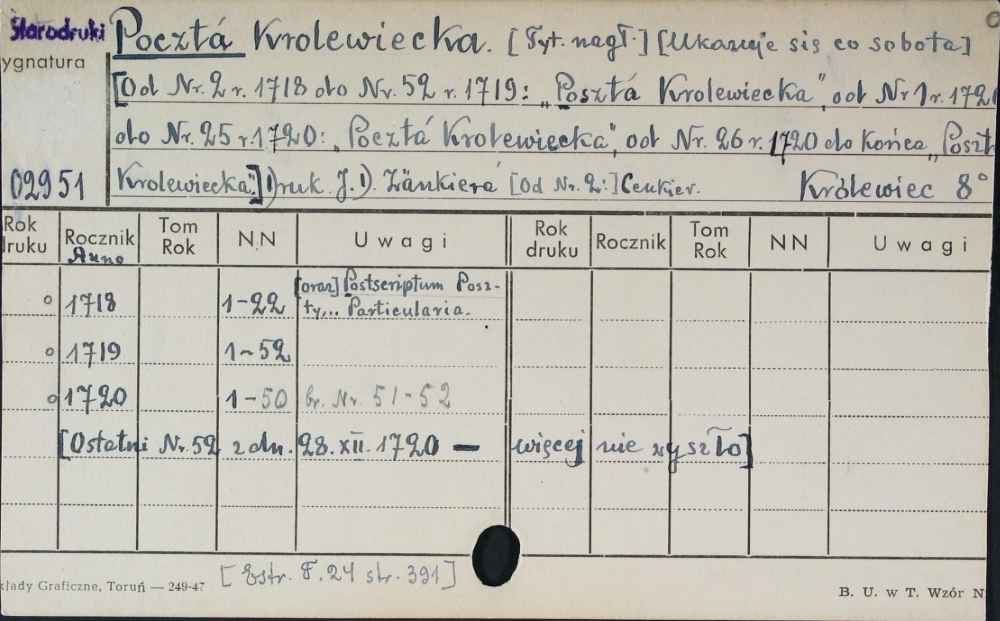 Starodruki
Pocztá Krolewiecka. [Tyt. nagł.] [Ukazuje się co sobota]
ygnatura
[Od Nr. 2 r. 1718 do Nr. 52 r. 1719: „Posztá Krolewiecka", od Nr 1 r. 1720
do Nr. 25 r. 1720: „Pocztá Krolewiecka", od Nr. 26 r. 1720 do końca „Poszt
02951
Krolewiecka"] Druk. J. D. Zänkierá [Od Nr. 2:] Cenkier. Królewiec 8°
Rok druku Rocznik Tom Rok NN Uwagi Rok druku Rocznik Tom Rok NN Uwagi
Anno
o 1718 1-22 [oraz] Postscriptum Posz-
ty... Particularia.
o 1719 1-52
o 1720 1-50 br. Nr. 51-52
[Ostatni Nr. 52 z dn. 28. XII. 1720 — więcej nie wyszło]
[Estr. T. 24 str. 391]
kłady Graficzne, Toruń — 249-47
B. U. w T. Wzór N